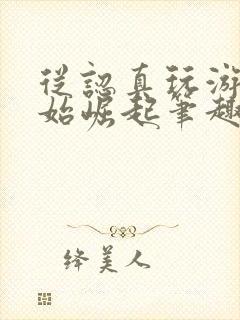 從認真玩游
始崛起筆趣
絳美人